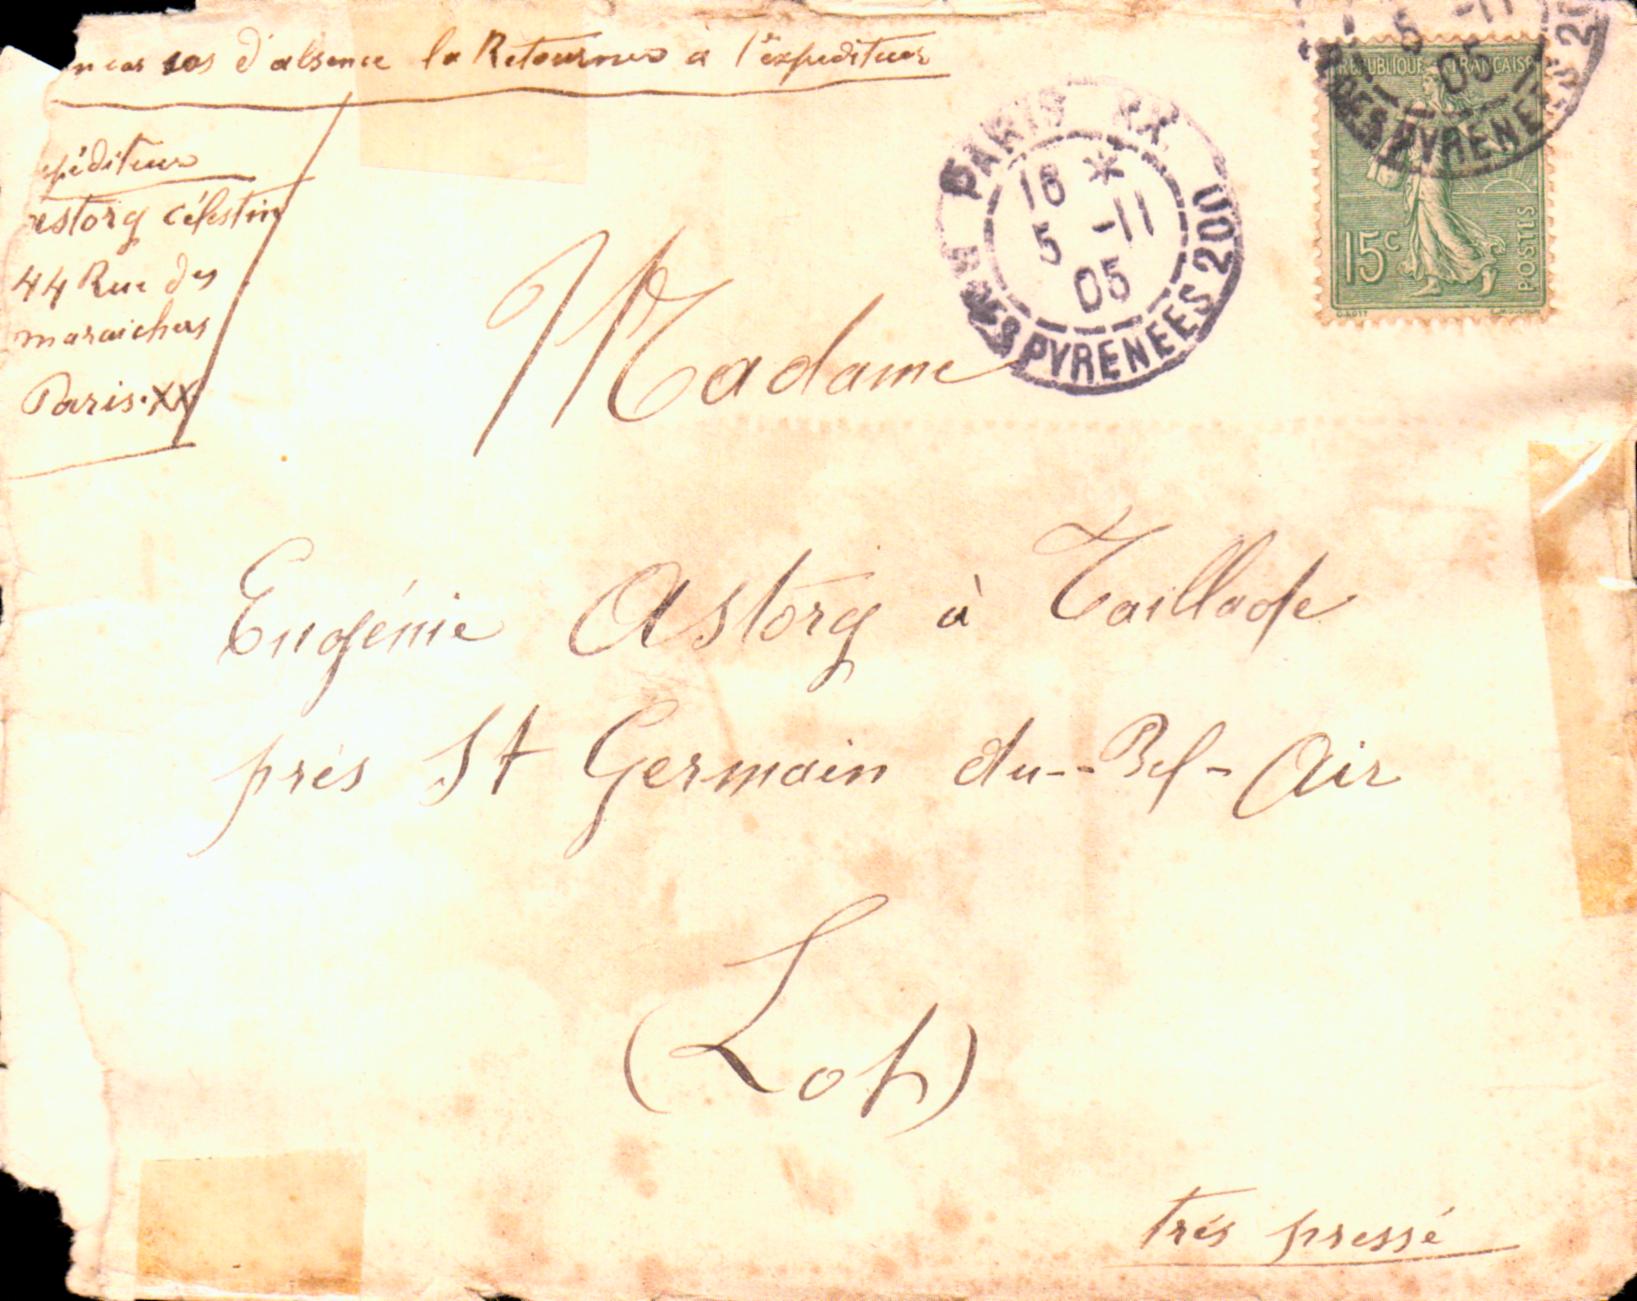 en cas d'absence la Retourner à l'expediteur
expéditeur
astorg célestin
44 Rue des
maraichers
Paris.XX
PARIS XX
R. DES PYRENEES 200
16 *
5 -11
05
5 -11
05
DES PYRENEES 20
REPUBLIQUE FRANCAISE
15c
POSTES
O.ROTY
L.MOUCHON
Madame
Eugénie Astorg à Taillade
prés St Germain du-Bel-Air
(Lot)
trés pressé